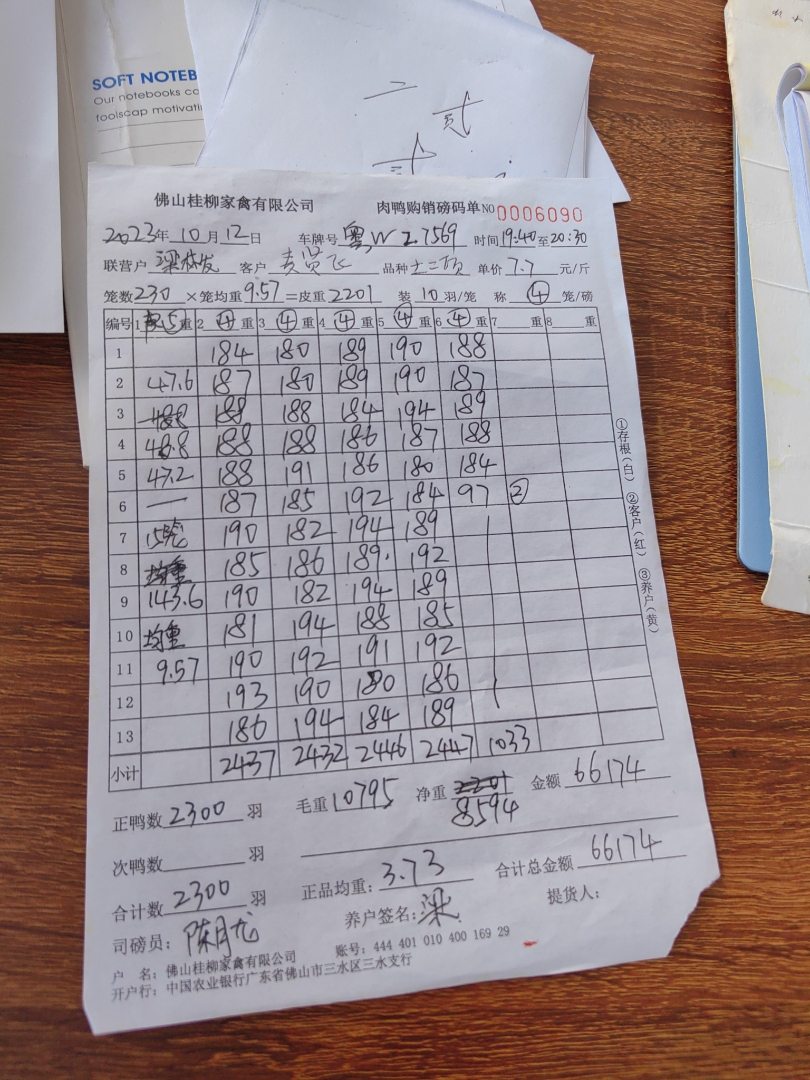 SOFT NOTEB
Our notebooks co
foolscap motivati
佛山桂柳家禽有限公司 肉鸭购销磅码单 NO 0006090
2023年 10月 12日 车牌号 粤W27569 时间 19:40 至 20:30
联营户 客户 麦贤飞 品种 单价 7.7 元/斤
笼数 230 ×笼均重 9.57 =皮重 2201 装 10 羽/笼 称 ④ 笼/磅
编号 1 5 重 2 ④ 重 3 ④ 重 4 ④ 重 5 ④ 重 6 ④ 重 7 重 8 重
1 184 180 189 190 188
2 47.6 187 180 189 190 187
3 188 188 184 194 189
4 48.8 188 188 186 187 188
5 47.2 188 191 186 180 184
6 — 187 185 192 184 97 ②
7 15笼 190 182 194 189
8 均重 185 186 189. 192
9 143.6 190 182 194 189
10 均重 181 194 188 185
11 9.57 190 192 191 192
12 193 190 180 186
13 186 194 184 189
小计 2437 2432 2446 2447 1033
①存根(白) ②客户(红) ③养户(黄)
正鸭数 2300 羽 毛重 10795 净重 8594 金额 66174
次鸭数 羽
合计数 2300 羽 正品均重: 3.73 合计总金额 66174
司磅员: 陈月龙 养户签名: 梁 提货人:
户 名: 佛山桂柳家禽有限公司 账号: 444 401 010 400 169 29
开户行: 中国农业银行广东省佛山市三水区三水支行